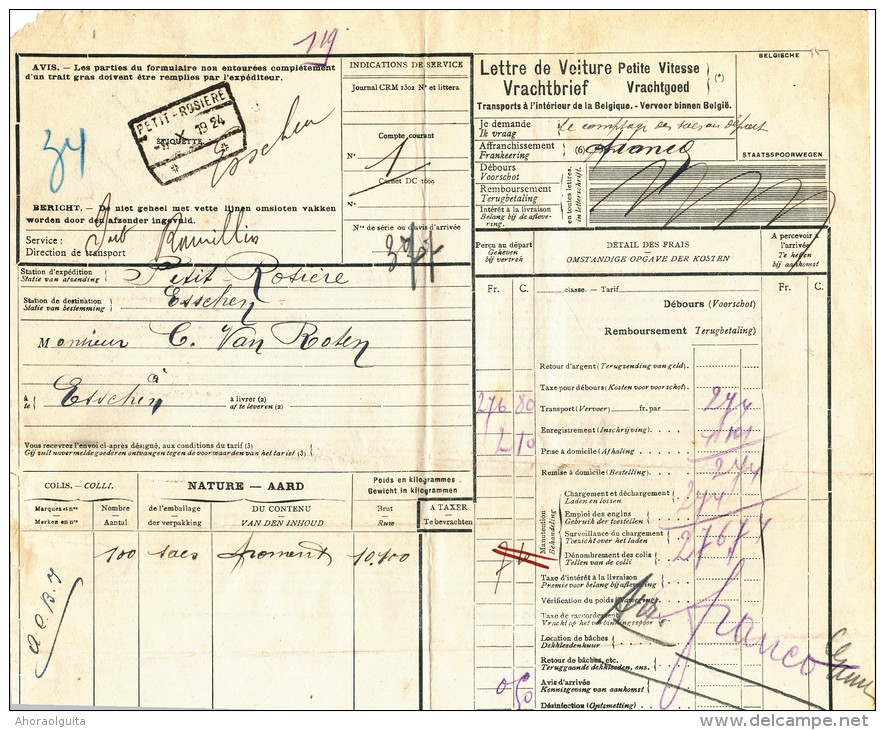 119
AVIS. — Les parties du formulaire non entourées complètement
d'un trait gras doivent être remplies par l'expéditeur.
PETIT-ROSIERE
X 1924
ETIQUETTE
34
Esschen
BERICHT. — De niet geheel met vette lijnen omsloten vakken
worden door den afzender ingevuld.
Service :
Direction de transport
Ramillies
INDICATIONS DE SERVICE
Journal CRM 1302 Nº et littera
Compte courant
Nº
1
Carnet DC 1660
Nº
Nºs de série ou d'avis d'arrivée
Lettre de Voiture Petite Vitesse
Vrachtbrief Vrachtgoed (*)
Transports à l'intérieur de la Belgique. - Vervoer binnen België.
BELGISCHE
STAATSSPOORWEGEN
Je demande
Ik vraag
le comptage des sacs au départ
Affranchissement
Frankeering
(6) franco
Débours
Voorschot
Remboursement
Terugbetaling
Intérêt à la livraison
Belang bij de aflevering.
en toutes lettres.
in letterschrift.
Station d'expédition
Statie van afzending
Petit-Rosière
Station de destination
Statie van bestemming
Esschen
Monsieur C. Van Roten
à
te
Esschen
à livrer (2)
af te leveren (2)
Vous recevrez l'envoi ci-après désigné, aux conditions du tarif (3)
Gij zult nevermelde goederen ontvangen tegen de voorwaarden van het tarief (3).
COLIS. — COLLI.
NATURE — AARD
Poids en kilogrammes
Gewicht in kilogrammen
Marques et nos
Merken en nrs
Nombre
Aantal
de l'emballage
der verpakking
DU CONTENU
VAN DEN INHOUD
Brut
Ruw
A TAXER
Te bevrachten
100 sacs froment 10.100
Perçu au départ
Geheven bij vertrek
DÉTAIL DES FRAIS
OMSTANDIGE OPGAVE DER KOSTEN
A percevoir à l'arrivée
Te heffen bij aankomst
Fr. C. classe. — Tarif Fr. C.
Débours (Voorschot)
Remboursement Terugbetaling)
Retour d'argent (Terugzending van geld).
Taxe pour débours (Kosten voor voorschot).
276 80 Transport (Vervoer) fr. par 274
2 10 Enregistrement (Inschrijving)
Prise à domicile (Afhaling
Remise à domicile (Bestelling). 274
Manutention
Behandeling
Chargement et déchargement
Laden en lossen
Emploi des engins
Gebruik der toestellen
Surveillance du chargement
Toezicht over het laden
Dénombrement des colis
Tellen van de colli
Taxe d'intérêt à la livraison
Premie voor belang bij aflevering
Vérification du poids
Taxe de raccordement
Vracht op het verbinningsspoor
franco
Location de bâches
Dekkleedenhuur
Retour de bâches, etc.
Teruggaande dekkleeden, enz.
0 50 Avis d'arrivée
Kennisgeving van aankomst
Désinfection (Ontsmetting)
Ahoraolguita
www.delcampe.net